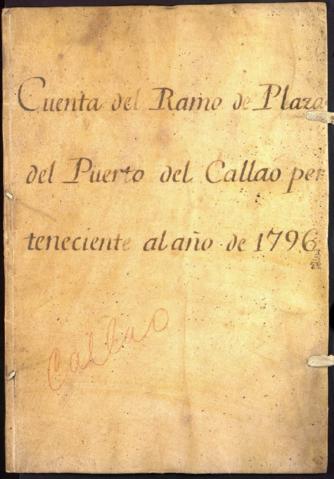 Cuenta del Ramo de Plaza
del Puerto del Callao per
teneciente al año de 1796
Callao